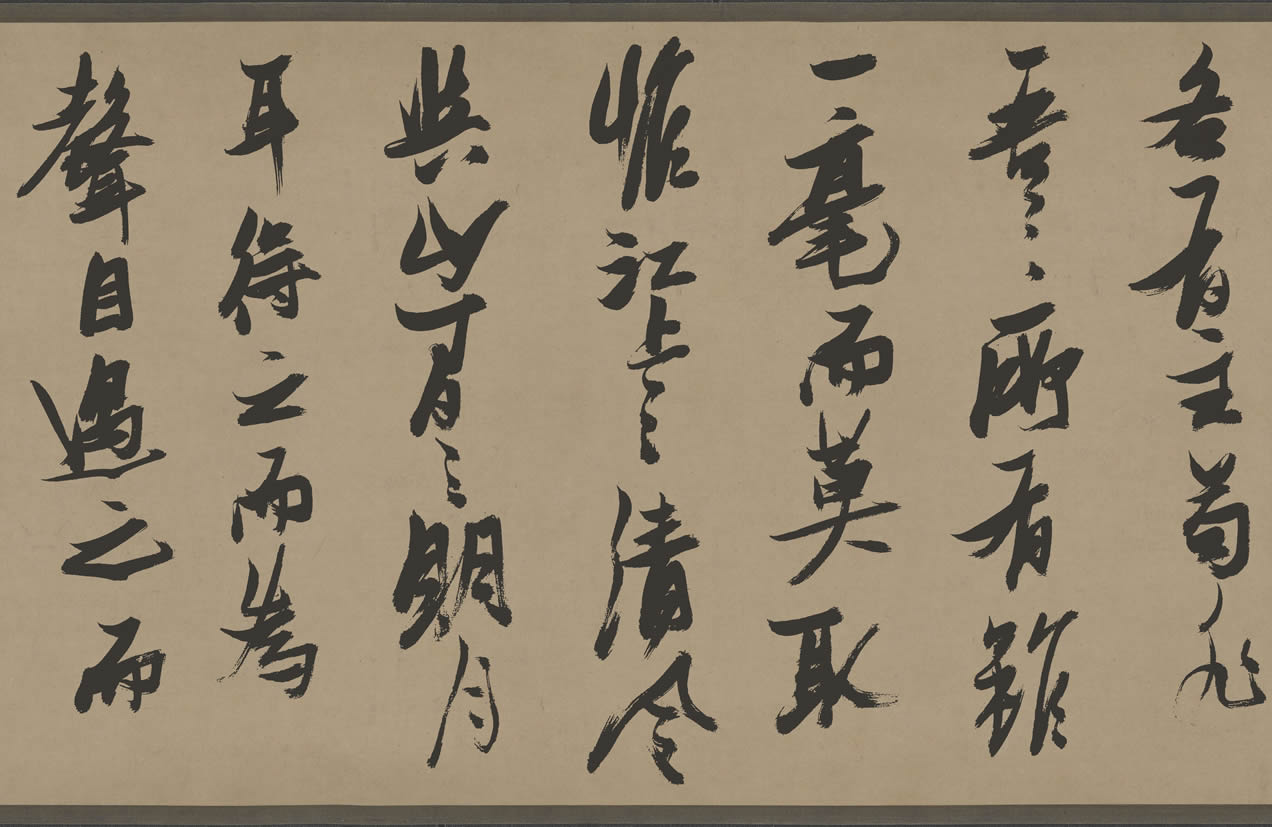 各有主苟非
吾之所有雖
一毫而莫取
惟江上之清風
與山間之明月
耳得之而為
聲目遇之而